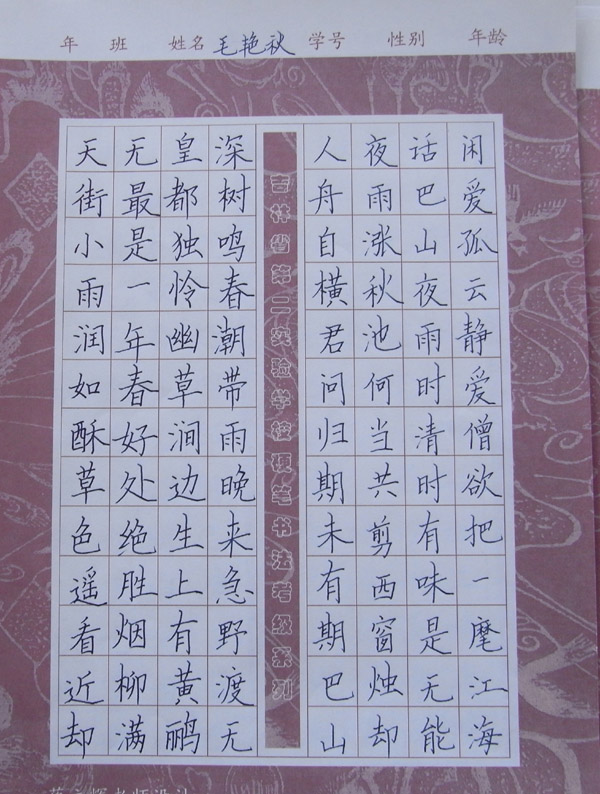 年 班 姓名 毛艳秋 学号 性别 年龄
天街小雨润如酥草色遥看近却
无最是一年春好处绝胜烟柳满
皇都独怜幽草涧边生上有黄鹂
深树鸣春潮带雨晚来急野渡无
吉林省第二实验学校硬笔书法考级系列
人舟自横君问归期未有期巴山
夜雨涨秋池何当共剪西窗烛却
话巴山夜雨时清时有味是无能
闲爱孤云静爱僧欲把一麾江海
老师设计